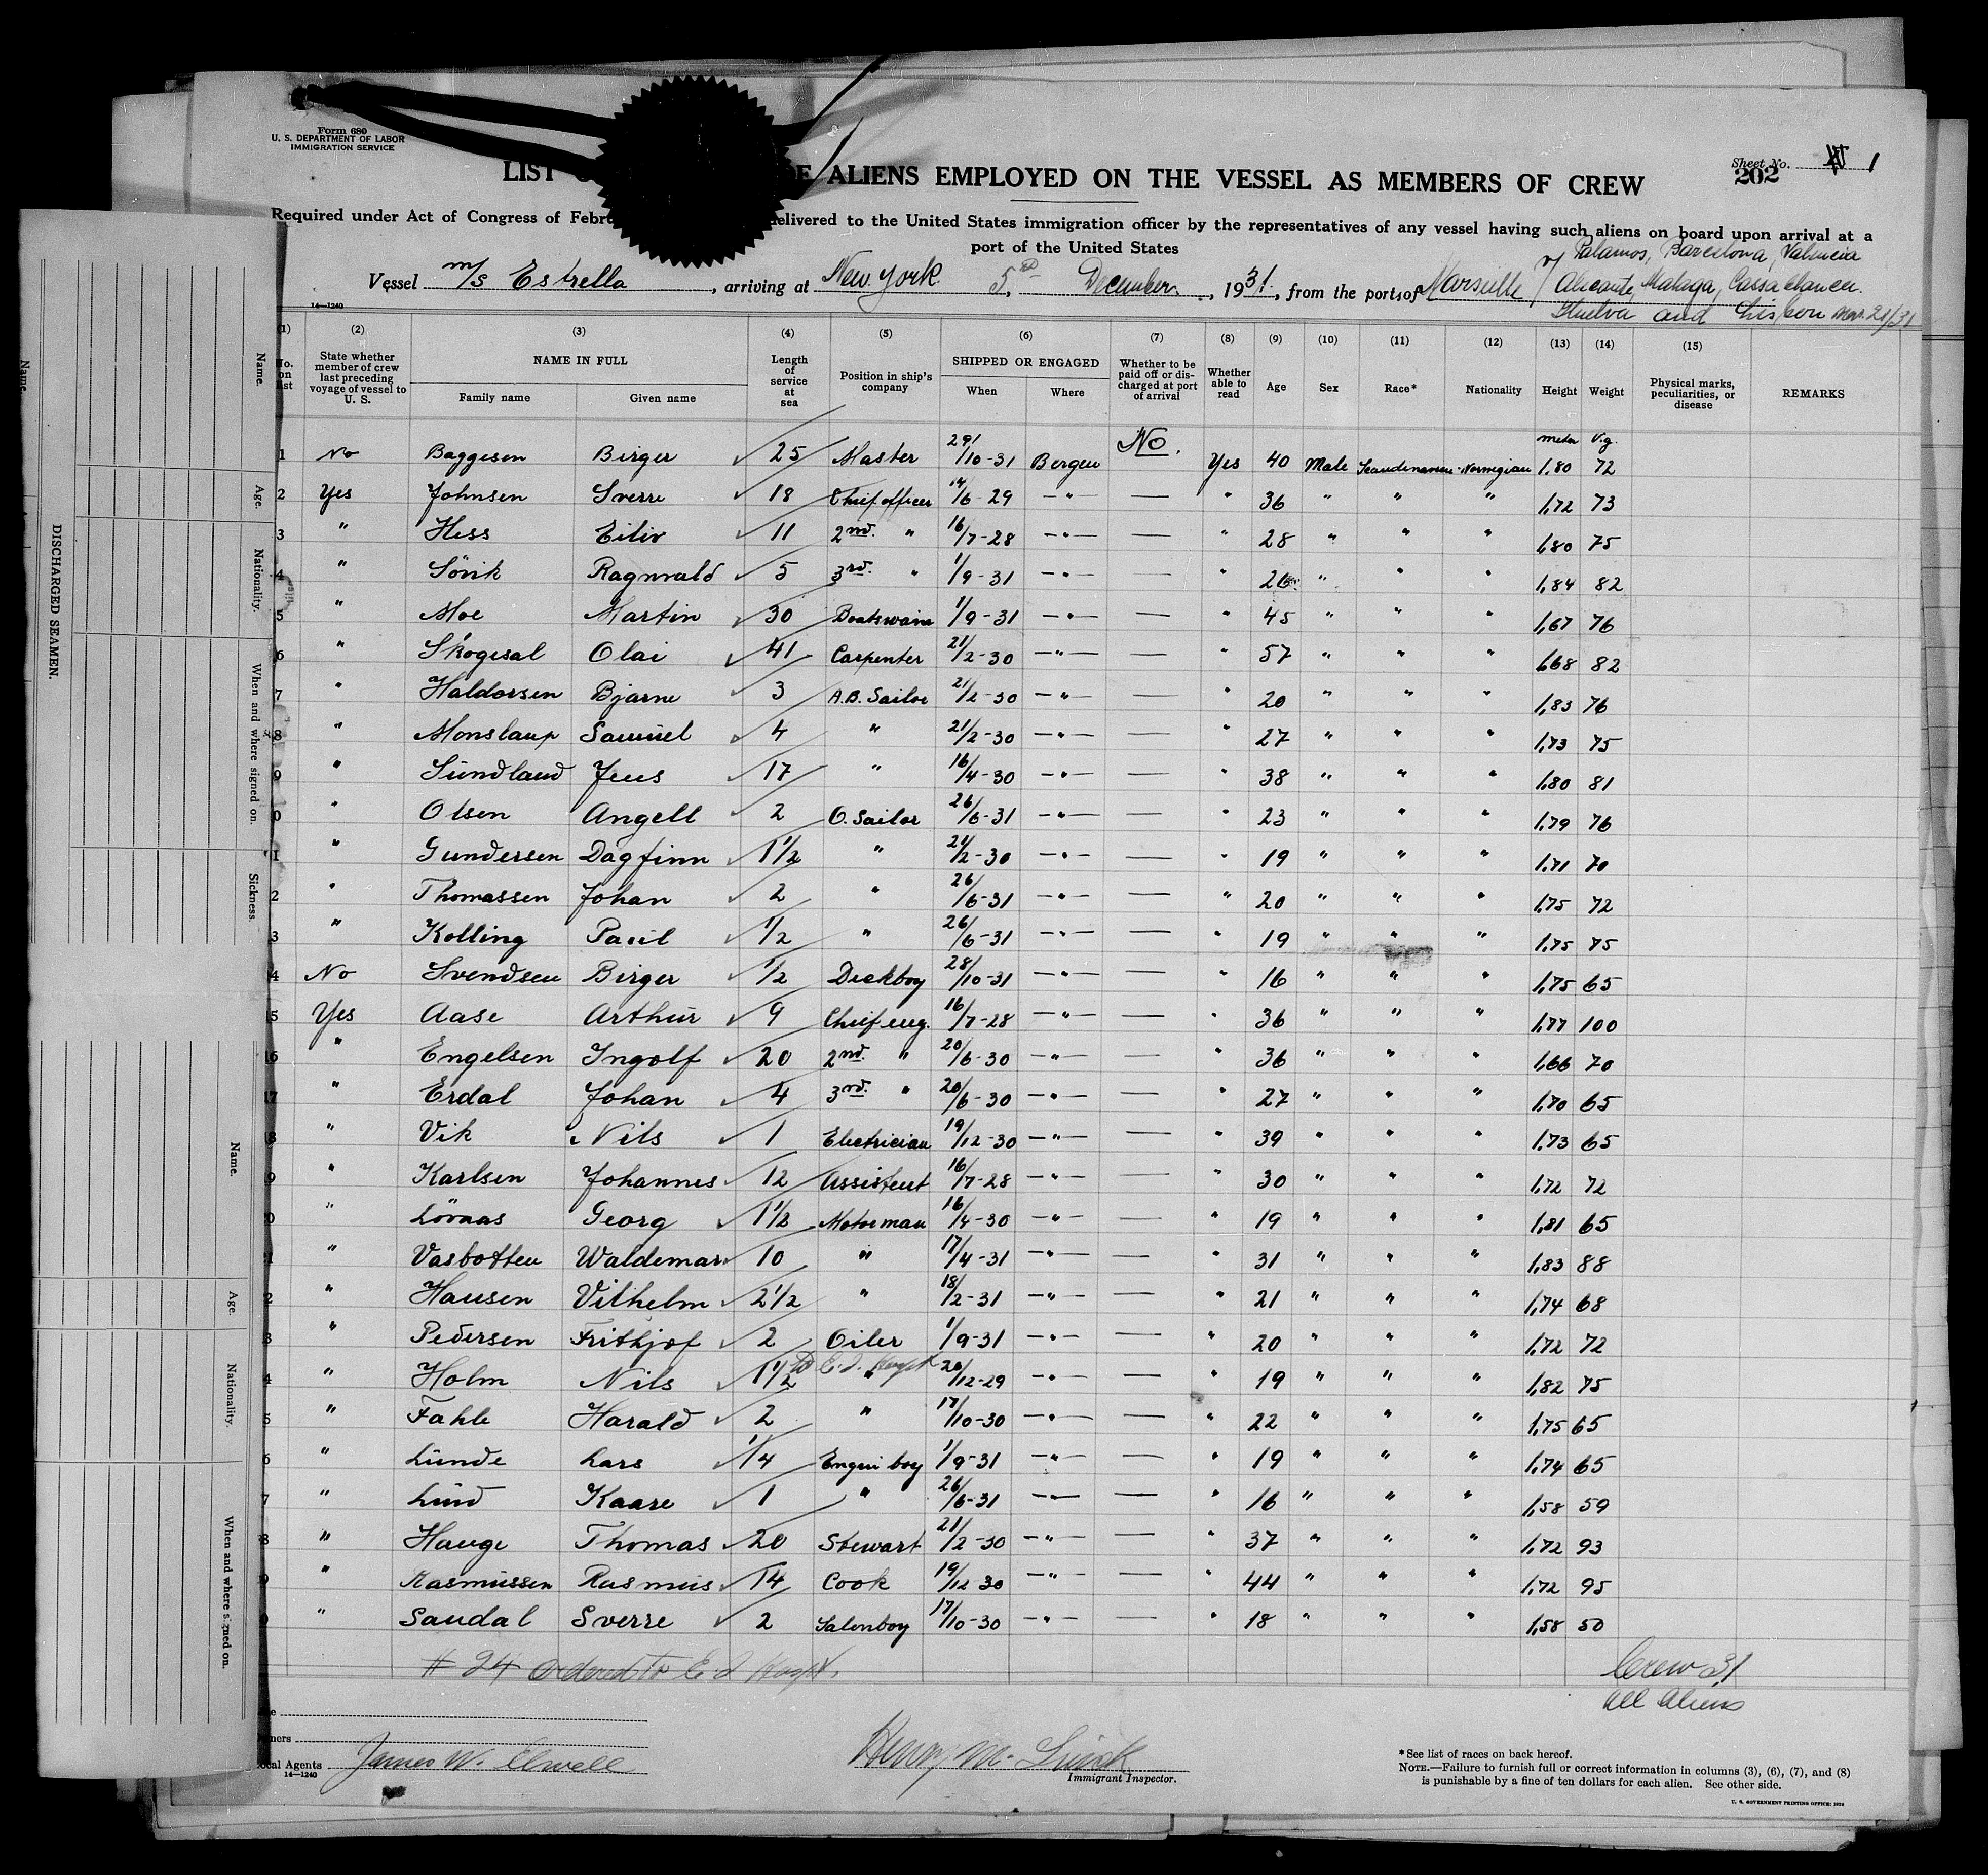 Form 680
U. S. DEPARTMENT OF LABOR
IMMIGRATION SERVICE
Sheet No. 1
202
LIST ALIENS EMPLOYED ON THE VESSEL AS MEMBERS OF CREW
Required under Act of Congress of delivered to the United States immigration officer by the representatives of any vessel having such aliens on board upon arrival at a
port of the United States
Palamos, Barcelona, Valencia
Vessel m/s Estrella, arriving at New York 5. December, 1931, from the ports of Marseille Alicante, Malaga, Cassablanca.
Huelva and Lisbon Nov. 21/31
14—1240
(1) (2) (3) (4) (5) (6) (7) (8) (9) (10) (11) (12) (13) (14) (15)
No. on list State whether member of crew last preceding voyage of vessel to U. S. NAME IN FULL Length of service at sea Position in ship's company SHIPPED OR ENGAGED Whether to be paid off or discharged at port of arrival Whether able to read Age Sex Race* Nationality Height Weight Physical marks, peculiarities, or disease REMARKS
Family name Given name When Where
meter
1 No Baggesen Birger 25 Master 29/10-31 Bergen No. Yes 40 Male Scandinavian Norwegian 1,80 72
2 Yes Johnsen Sverre 18 Chief officer 14/6-29 -"- — " 36 " " " 1,72 73
3 " Hess Eiliv 11 2nd. " 16/7-28 -"- — " 28 " " " 1,80 75
4 " Sövik Ragnvald 5 3rd. " 1/9-31 -"- — " 26 " " " 1,84 82
5 " Moe Martin 30 Boatswain 1/9-31 -"- — " 45 " " " 1,67 76
6 " Skogesal Olai 41 Carpenter 21/2-30 -"- — " 57 " " " 1,68 82
7 " Haldorsen Bjarne 3 A.B. Sailor 21/2-30 -"- — " 20 " " " 1,83 76
8 " Monslaup Samuel 4 " 21/2-30 -"- — " 27 " " " 1,73 75
9 " Sundland Jens 17 " 16/4-30 -"- — " 38 " " " 1,80 81
0 " Olsen Angell 2 O. Sailor 26/6-31 -"- — " 23 " " " 1,79 76
1 " Gundersen Dagfinn 1 1/2 " 21/2-30 -"- — " 19 " " " 1,71 70
2 " Thomassen Johan 2 " 26/6-31 -"- — " 20 " " " 1,75 72
3 " Kolling Paul 1/2 " 26/6-31 -"- — " 19 " " " 1,75 75
4 No Svendsen Birger 1/2 Deckboy 28/10-31 -"- — " 16 " " " 1,75 65
5 Yes Aase Arthur 9 Chief eng. 16/7-28 -"- — " 36 " " " 1,77 100
16 " Engelsen Ingolf 20 2nd. " 20/6-30 -"- — " 36 " " " 1,66 70
17 " Erdal Johan 4 3rd. " 20/6-30 -"- — " 27 " " " 1,70 65
8 " Vik Nils 1 Electrician 19/12-30 -"- — " 39 " " " 1,73 65
9 " Karlsen Johannes 12 Assistent 16/7-28 -"- — " 30 " " " 1,72 72
0 " Lövaas Georg 1 1/2 Motorman 16/4-30 -"- — " 19 " " " 1,81 65
1 " Vasbotten Waldemar 10 " 17/4-31 -"- — " 31 " " " 1,83 88
2 " Hansen Vilhelm 2 1/2 " 18/2-31 -"- — " 21 " " " 1,74 68
3 " Pedersen Frithjof 2 Oiler 1/9-31 -"- — " 20 " " " 1,72 72
4 " Holm Nils 1 1/2 to E.I. Hospt " 20/12-29 -"- — " 19 " " " 1,82 75
5 " Fahle Harald 2 " 17/10-30 -"- — " 22 " " " 1,75 65
6 " Lunde Lars 1/4 Engin boy 1/9-31 -"- — " 19 " " " 1,74 65
7 " Lund Kaare 1 " 26/6-31 -"- — " 16 " " " 1,58 59
8 " Hauge Thomas 20 Stewart 21/2-30 -"- — " 37 " " " 1,72 93
9 " Rasmussen Rasmus 14 Cook 19/12 30 -"- — " 44 " " " 1,72 95
0 " Sandal Sverre 2 Salonboy 17/10-30 -"- — " 18 " " " 1,58 50
# 24 ordered to E.I Hospt.
Crew 31
all aliens
Local Agents James W. Elwell
14—1240
Henry M.
Immigrant Inspector.
*See list of races on back hereof.
NOTE.—Failure to furnish full or correct information in columns (3), (6), (7), and (8)
is punishable by a fine of ten dollars for each alien. See other side.
U. S. GOVERNMENT PRINTING OFFICE:
DISCHARGED SEAMEN.
Name.
Name.
Age.
Nationality.
When and where signed on.
Sickness.
Name.
Age.
Nationality.
When and where signed on.